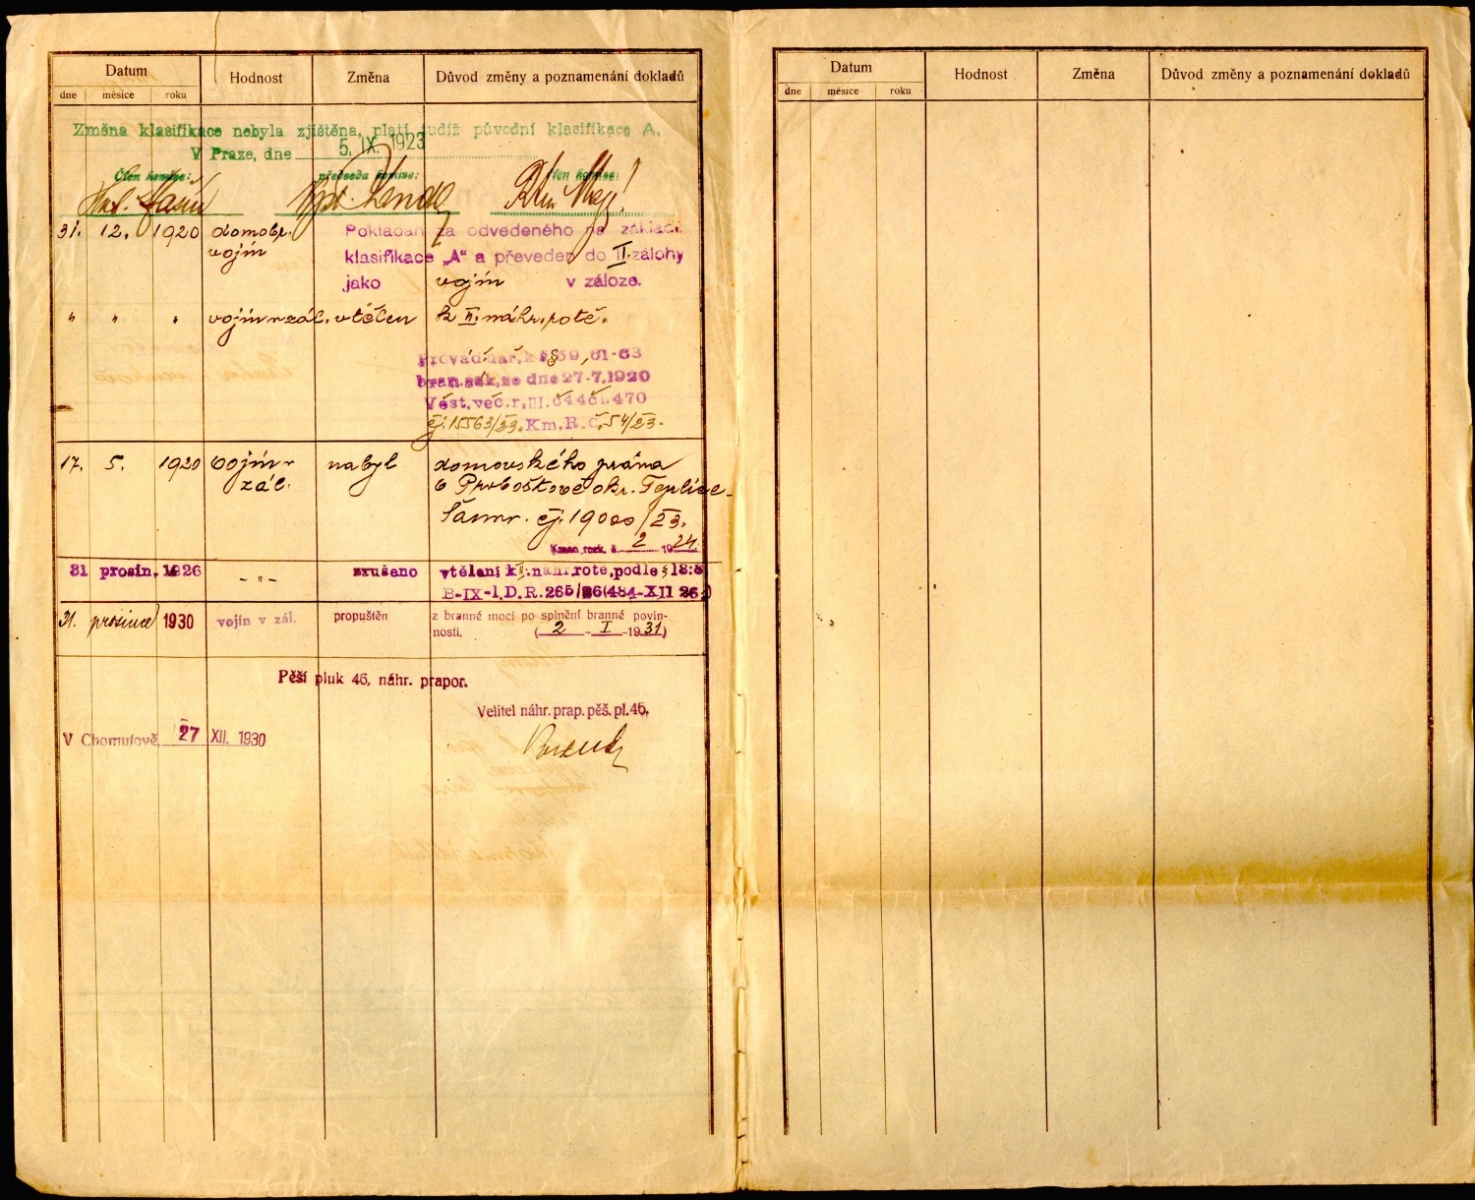 Datum Hodnost Změna Důvod změny a poznamenání dokladů
dne měsíce roku
Změna klasifikace nebyla zjištěna, platí tudíž původní klasifikace A.
V Praze, dne 5. IX. 1923
Člen komise: předseda komise: člen komise:
31. 12. 1920 domobr. Pokládán za odvedeného na základě
vojín klasifikace „A" a převeden do II. zálohy
jako vojín v záloze.
" " " vojín v zál. vtělen k II. náhr. rotě.
Provád. nař. k §§ 59, 61-63
bran. zák. ze dne 27.7.1920
Věst. věc. r. III. č 44 čl. 470
čj. 15563/23. Km. R. č. 54/23.
17. 5. 1920 vojín v nabyl domovského práva
zál. v Proboštově okr. Teplice-
Šanov. čj. 19000/23.
Kmen. rozk. č. 2 1924
31 prosin. 1926 - " - zrušeno vtělení k II. náhr. rotě, podle § 18:8
B-IX-1, D. R. 265/26 (484-XII 26)
31. prosince 1930 vojín v zál. propuštěn z branné moci po splnění branné povin-
nosti. (2 - I - 1931)
Pěší pluk 46, náhr. prapor.
Velitel náhr. prap. pěš. pl. 46.
V Chomutově, 27 XII. 1930
Datum Hodnost Změna Důvod změny a poznamenání dokladů
dne měsíce roku